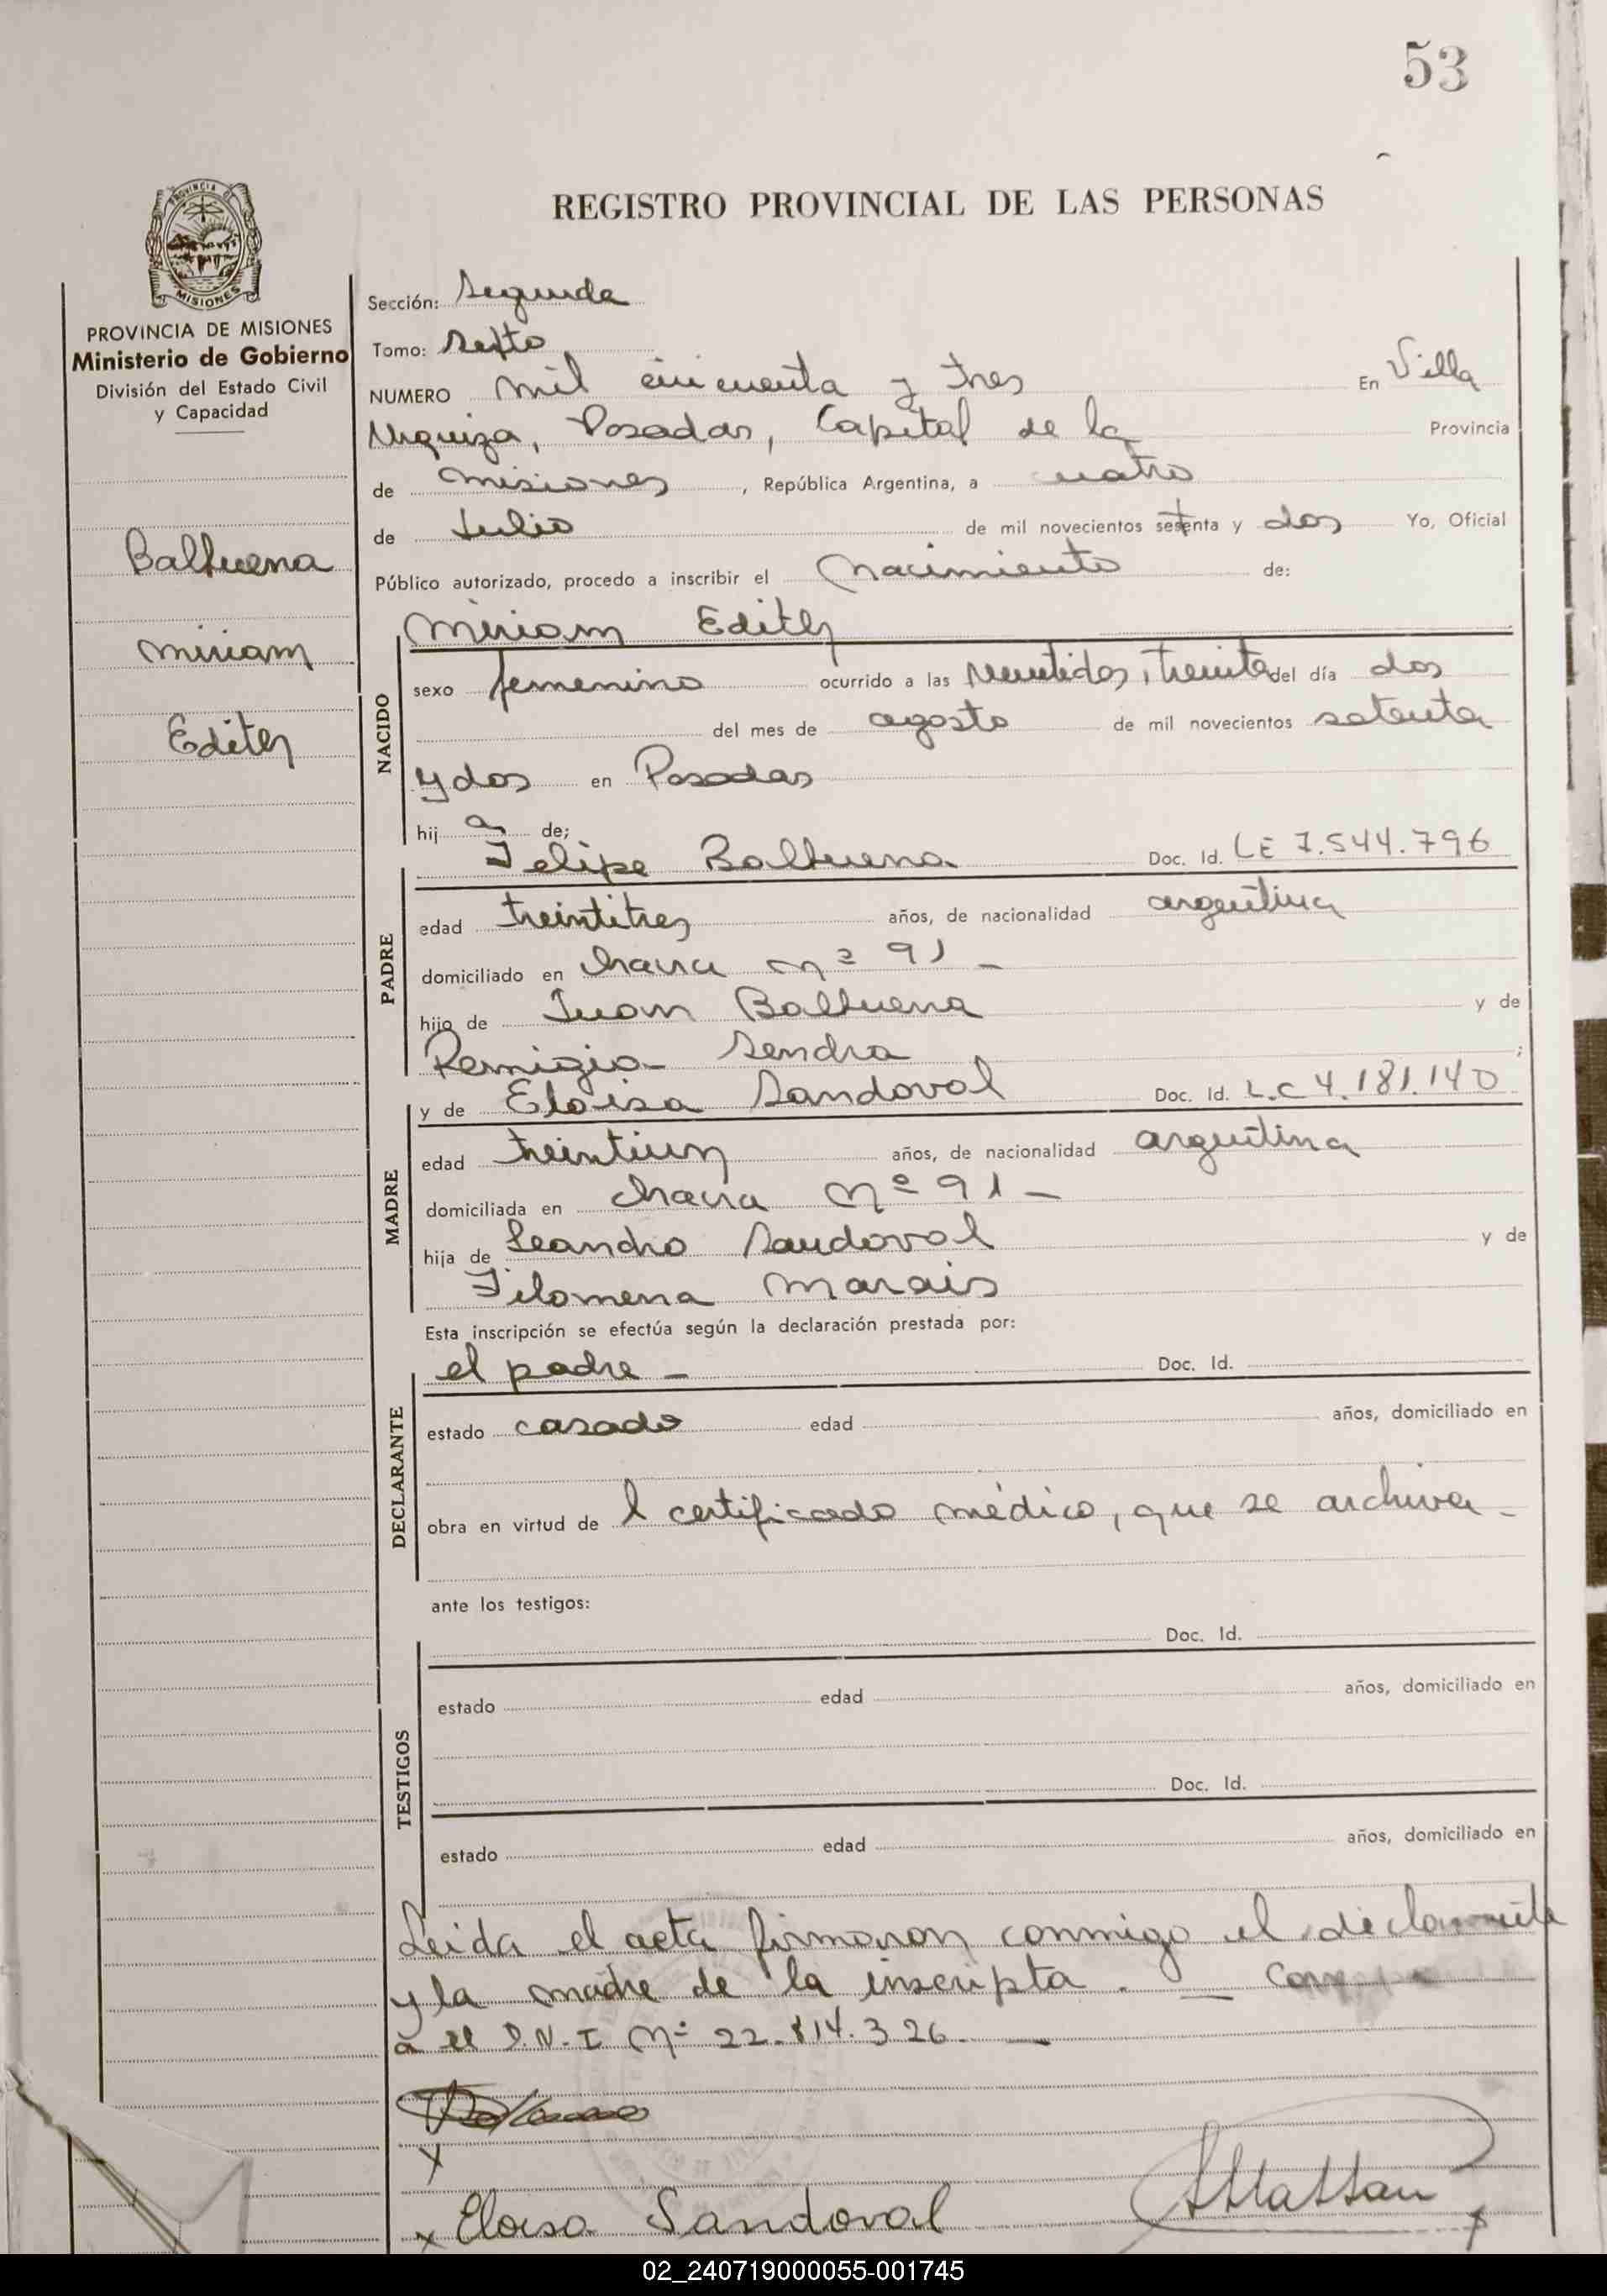 53
REGISTRO PROVINCIAL DE LAS PERSONAS
PROVINCIA DE MISIONES
MISIONES
PROVINCIA DE MISIONES
Ministerio de Gobierno
División del Estado Civil
y Capacidad
Balbuena
Miriam
Edith
Sección: Segunda
Tomo: Sexto
NUMERO mil cincuenta y tres En Villa
Urquiza, Posadas, Capital de la Provincia
de Misiones, República Argentina, a cuatro
de Julio de mil novecientos setenta y dos Yo, Oficial
Público autorizado, procedo a inscribir el Nacimiento de:
Miriam Edith
NACIDO
sexo femenino ocurrido a las veintidos, treinta del día dos
del mes de agosto de mil novecientos setenta
y dos en Posadas
hij a de;
Felipe Balbuena Doc. Id. LE 7.544.796
PADRE
edad treintitres años, de nacionalidad argentina
domiciliado en chacra nº 91 -
hijo de Juan Balbuena y de
Remigia Sendra ;
y de Eloisa Sandoval Doc. Id. L.C 4.181.140
MADRE
edad treintiun años, de nacionalidad argentina
domiciliada en chacra nº 91 -
hija de Leandro Sandoval y de
Filomena Marais
Esta inscripción se efectúa según la declaración prestada por:
el padre - Doc. Id.
DECLARANTE
estado casado edad años, domiciliado en
obra en virtud de l certificado médico, que se archiva -
ante los testigos:
Doc. Id.
TESTIGOS
estado edad años, domiciliado en
Doc. Id.
estado edad años, domiciliado en
Leida el acta firmaron conmigo el declarante
y la madre de la inscripta. —
a el D.N.I Nº 22.814.326. —
x
x Eloisa Sandoval
02_240719000055-001745